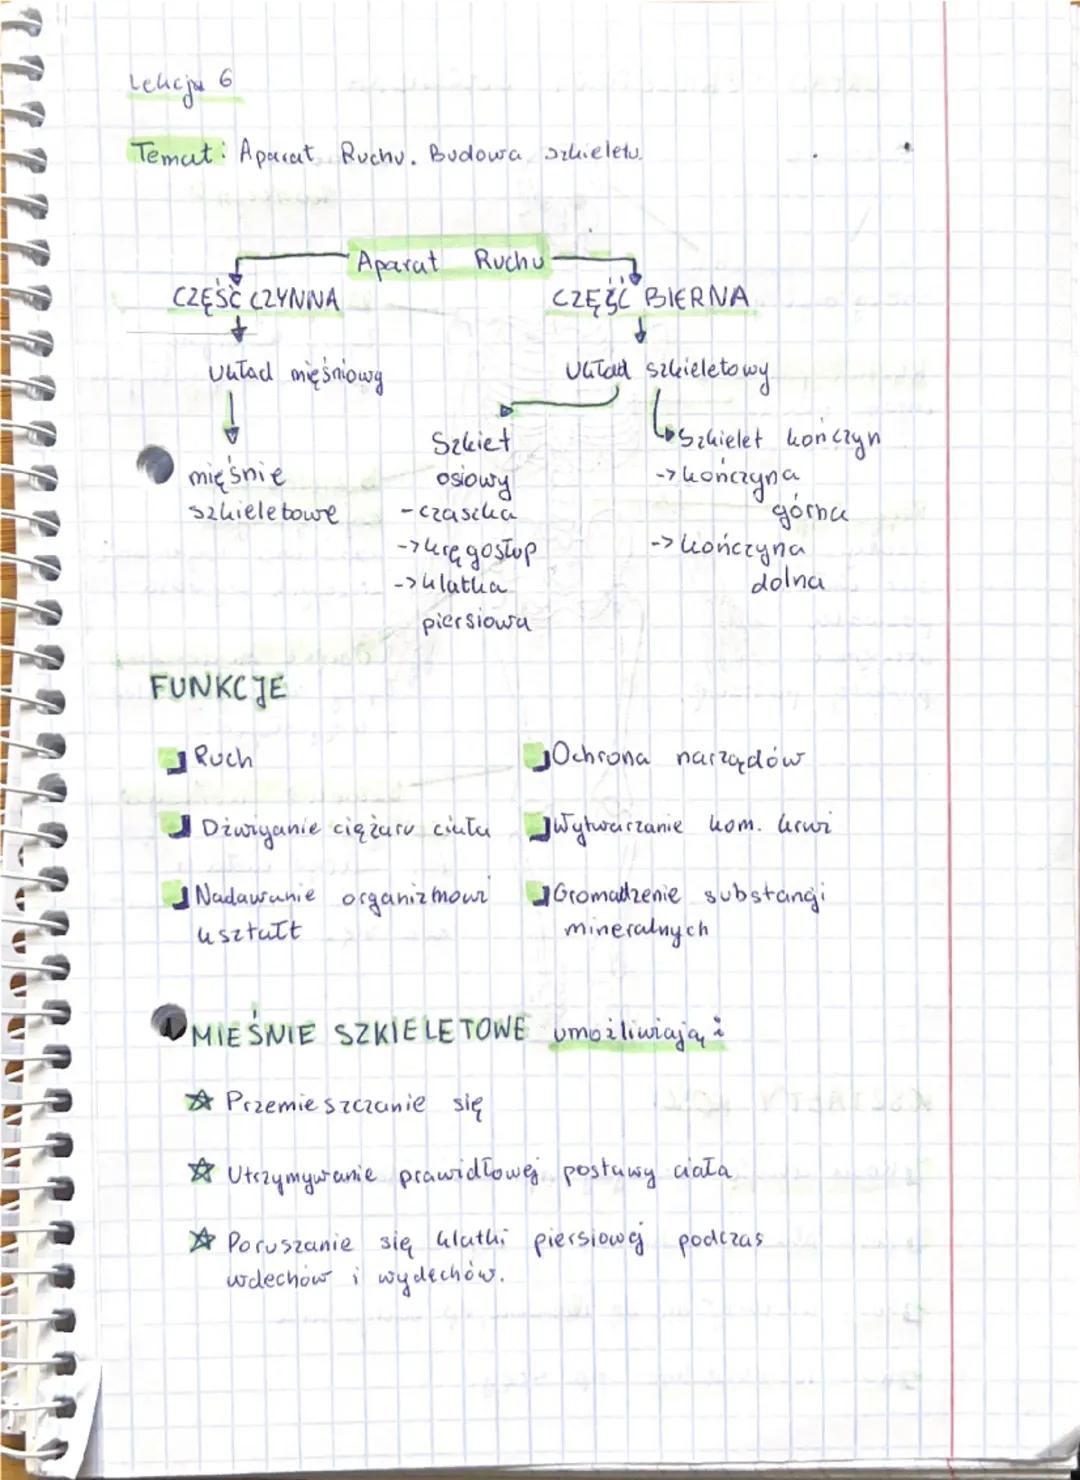 Lekcja 6
Temat: Aparat Ruchu. Budowa szkieletu.
Aparat Ruchu
CZĘŚĆ CZYNNA
Układ mięśniowy
mięśnie
szkieletowe
CZĘŚĆ BIERNA
Układ szkieletowy
Szkiet
osiowy
-czaszka
->kręgosłup
->klatka
piersiowa
Szkielet kończyn
->kończyna
górna
->kończyna
dolna
FUNKCJE
Ruch
Dźwiganie ciężaru ciała
Nadawanie organizmowi
kształt
Ochrona narządów
Wytwarzanie kom. krwi
Gromadzenie substancji
mineralnych
MIEŚNIE SZKIELETOWE umożliwiają:
Przemieszczanie się
Utrzymywanie prawidłowej postawy ciała
Poruszanie się klatki piersiowej podczas
wdechów i wydechów.